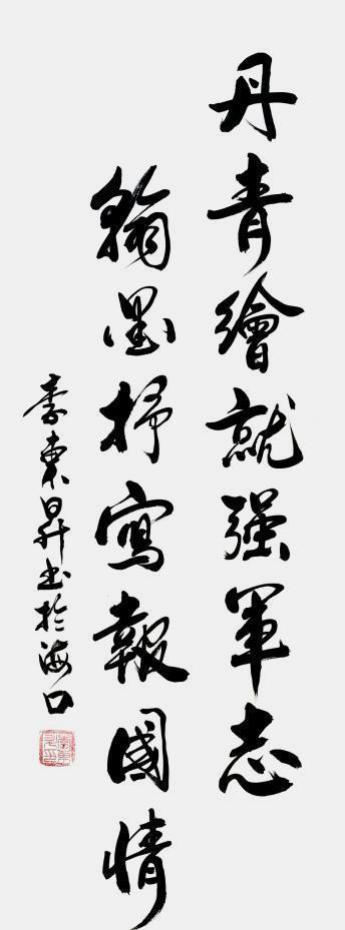 丹青繪就强軍志
翰墨抒寫報國情
李東昇书於海口